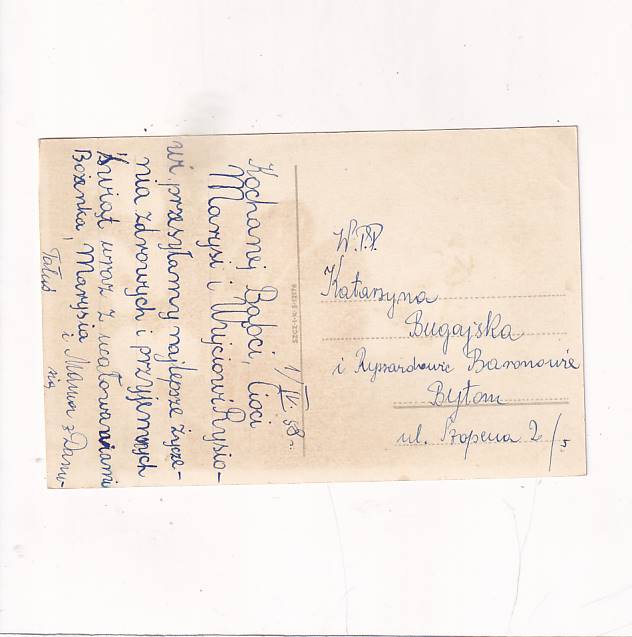 1/IV. 58r.
Kochanej Babci, Cioci
Marysi i Wujciowi Rysio-
wi, przesyłamy najlepsze życze-
nia zdrowych i przyjemnych
Świąt wraz z ucałowaniami
Bożenka, Marysia
i Mamа z Danu-
sią
Tatuś
W.P.P.
Katarzyna
Bugajska
i Ryszardowie Baronowie
Bytom
ul. Szopena 2/5